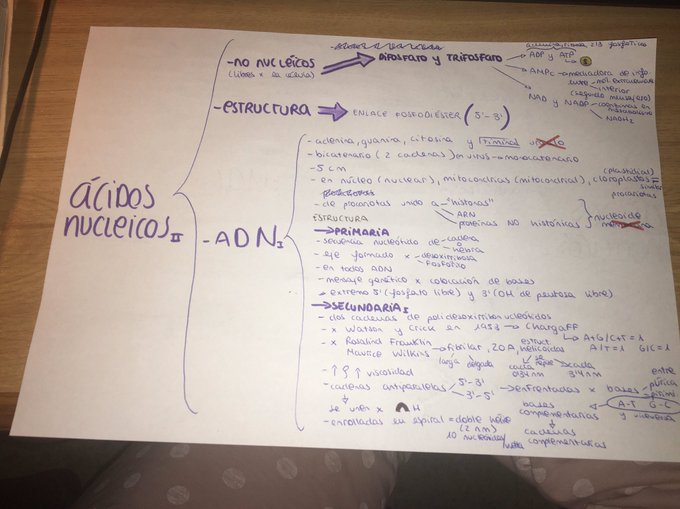 ÁCIDOS
NUCLEICOS II
-NO NUCLÉICOS
(libres x la célula)
DIFOSFATO y TRIFOSFATO
adenina, ribosa, 2/3 fosfóricos
ADP y ATP
AMPc → mediadora de info
entre
interior
(segundo mensajero)
NAD y NADP → coenzimas en
NADH2
-ESTRUCTURA → ENLACE FOSFODIÉSTER (5'-3')
-ADN I
- adenina, guanina, citosina y timina
- bicatenario (2 cadenas) en virus → monocatenario
- 5 cm
- en núcleo (nuclear), mitocondrias (mitocondrial), cloroplastos
(plastidial)
similar
procariotas
- de procariotas unido a "histonas"
ARN
proteínas NO histónicas
nucleoide
ESTRUCTURA
→ PRIMARIA
- secuencia nucleótido de cadena
o
hebra
- eje formado x desoxirribosa
fosfórico
- en todos ADN
- mensaje genético x colocación de bases
- extremo 5' (fosfato libre) y 3' (OH de pentosa libre)
→ SECUNDARIA
- dos cadenas de polidesoxirribonucleótidos
- x Watson y Crick en 1953 → Chargaff
A+G/C+T=1
A/T=1 G/C=1
- x Rosalind Franklin
Maurice Wilkins
fibrilar, 20A,
estruct.
helicoidas
larga delgada
cada
0'34 nm
se
repite
cada
3'4 nm
- ↑ ↑ viscosidad
- cadenas antiparalelas 5'-3'
3'-5'
→ enfrentadas x bases
entre
púrica
A-T G-C
y viceversa
se unen x H
bases
complementarias
cadenas
complementarias
- enrolladas en espiral = doble hélice
(2 nm)
10 nucleótidos/vuelta